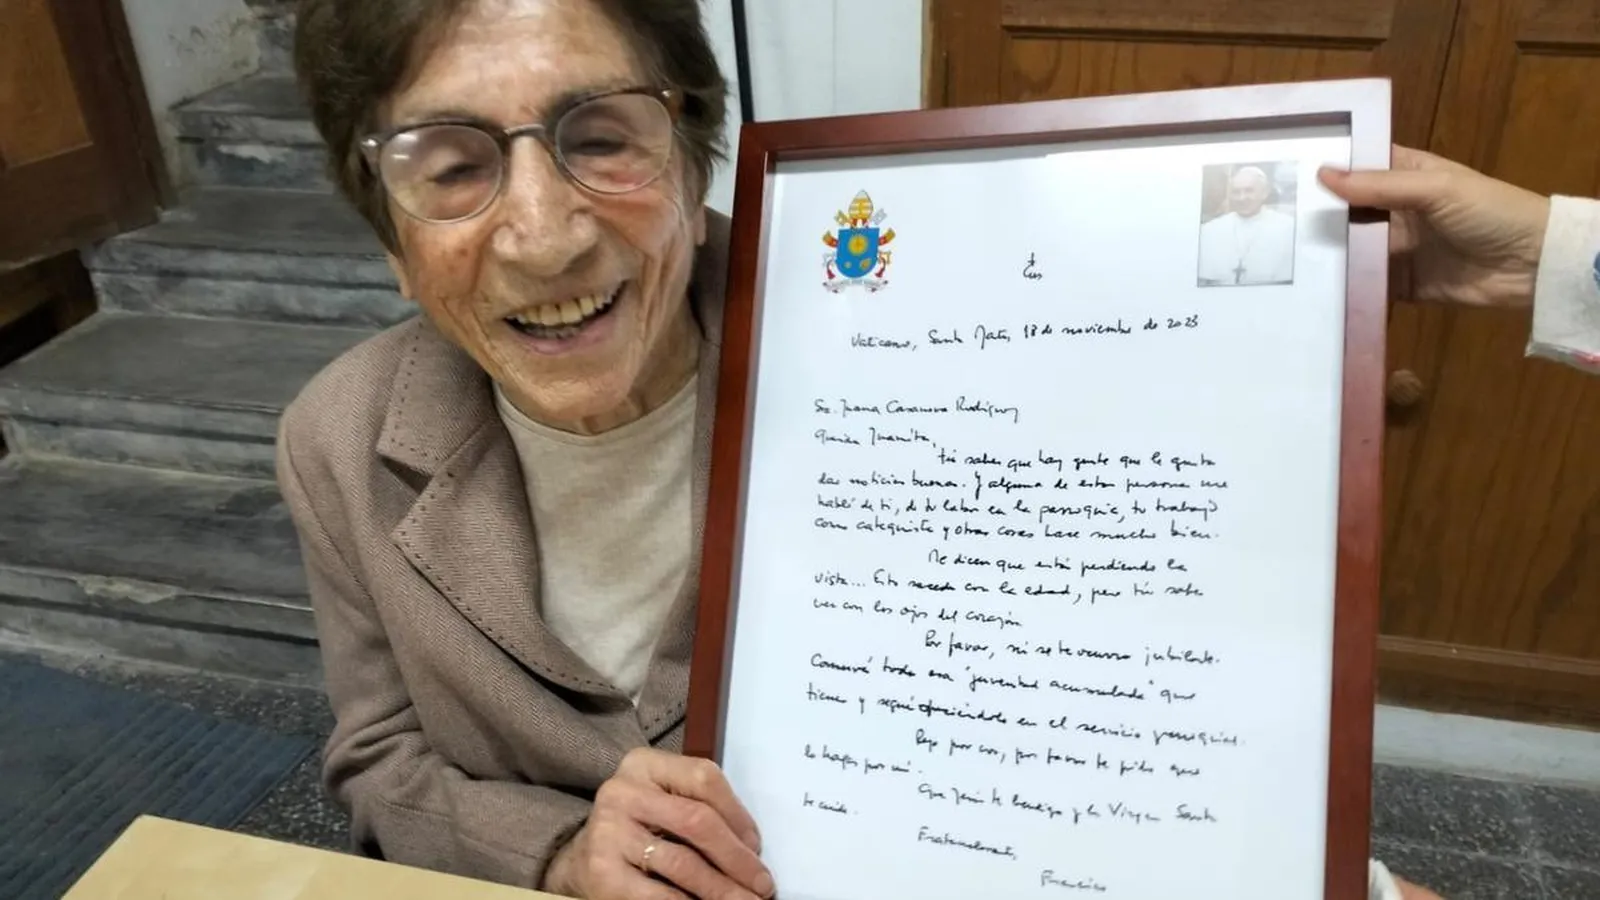 Vaticano, Santa Marta, 18 de noviembre de 2023
Sra. Juana Casanova Rodríguez
Querida Juanita,
tú sabes que hay gente que le gusta
dar noticias buenas. Y alguna de estas personas me
habló de ti, de tu labor en la parroquia, tu trabajo
como catequista y otras cosas hace mucho bien.
Me dicen que estás perdiendo la
vista... Esto sucede con la edad, pero tú sabes
ver con los ojos del corazón
Por favor, ni se te ocurra jubilarte.
Conservá toda esa "juventud acumulada" que
tienes y seguí ofreciéndola en el servicio parroquial.
Rezo por vos, por favor te pido que
lo hagas por mí.
Que Jesús te bendiga y la Virgen Santa
te cuide.
Fraternalmente,
Francisco